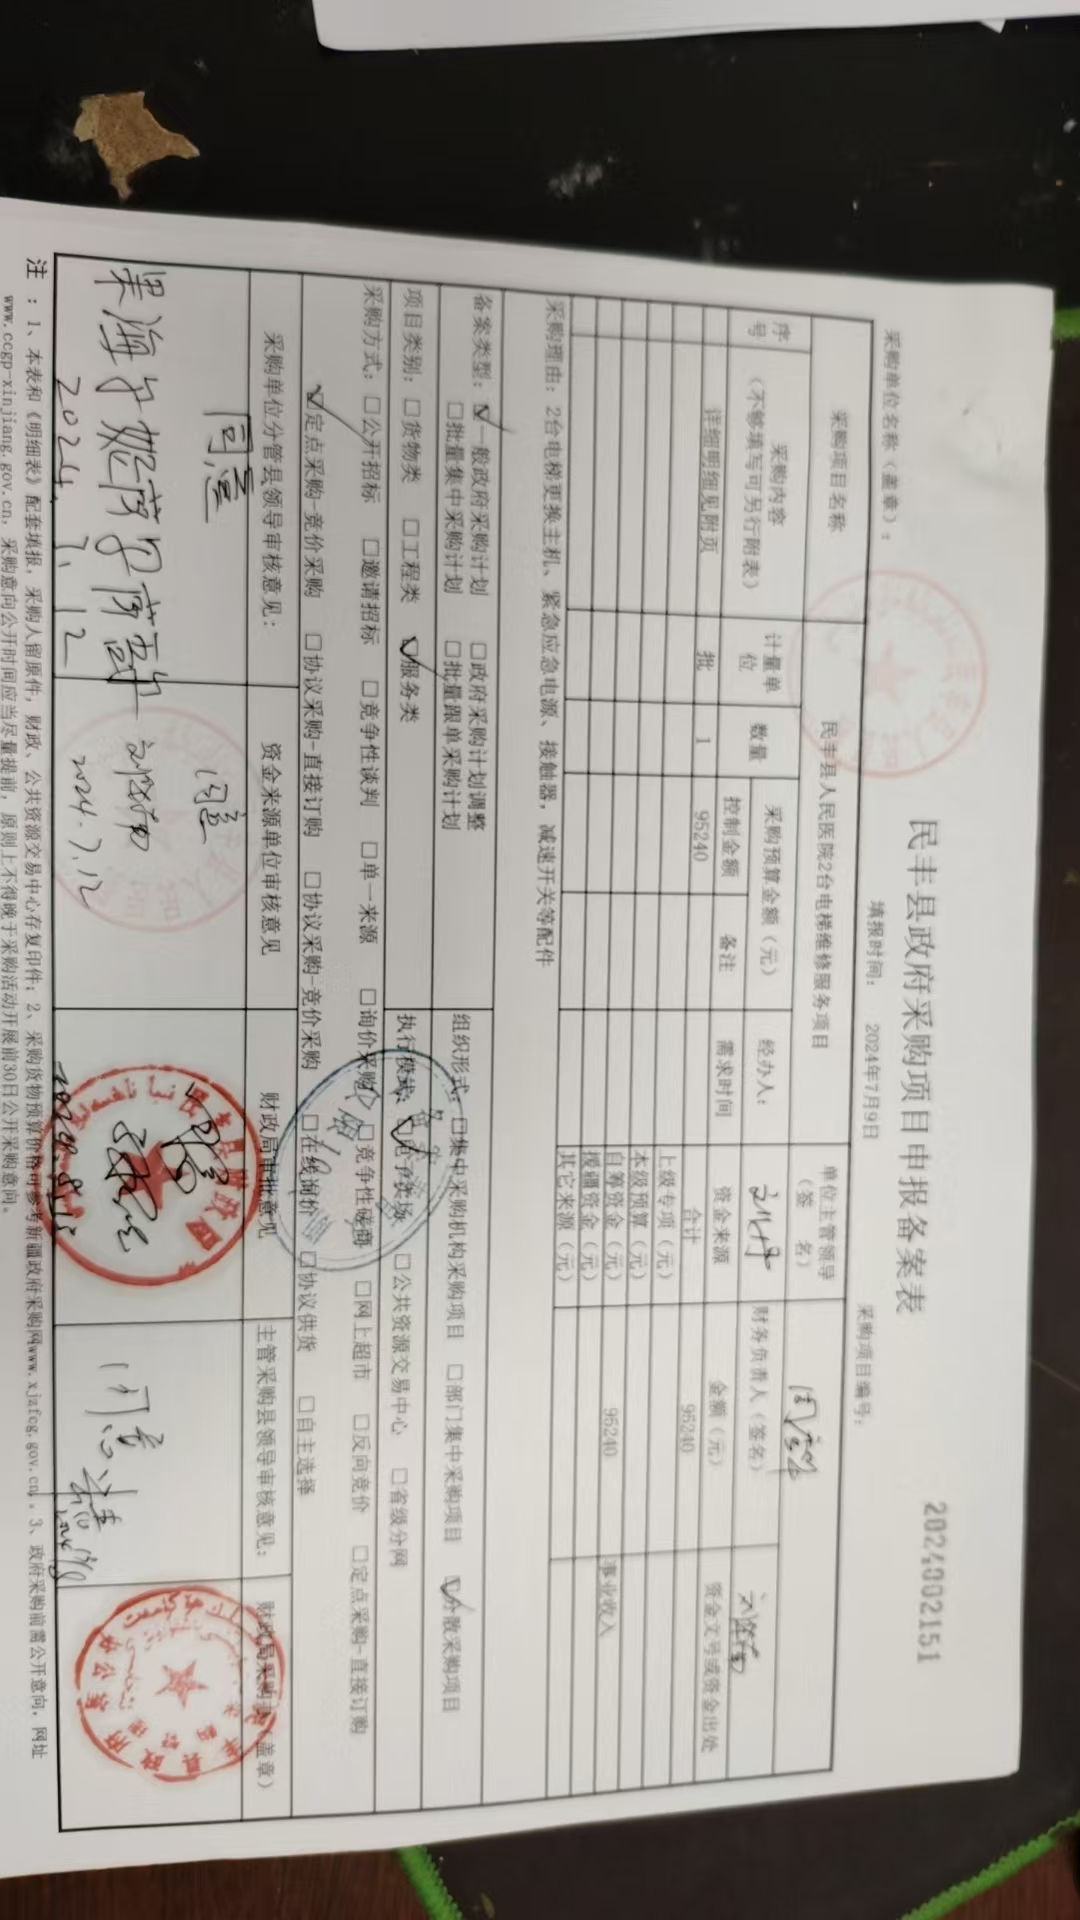 2024002151
民丰县政府采购项目申报备案表
采购单位名称(盖章): 填报时间: 2024年7月9日 采购项目编号:
采购项目名称 民丰县人民医院2台电梯维修服务项目 单位主管领导(签名)
序号 采购内容(不够填写可另行附表) 计量单位 数量 采购预算金额(元) 经办人: 财务负责人(签名)
控制金额 备注 需求时间 资金来源 金额(元) 资金文号或资金出处
详细明细见附页 批 1 95240 合计 95240
上级专项(元)
本级预算(元)
自筹资金(元) 95240 事业收入
援疆资金(元)
其它来源(元)
采购理由:2台电梯更换主机、紧急应急电源、接触器,减速开关等配件
备案类型:☑一般政府采购计划 □政府采购计划调整
□批量集中采购计划 □批量跟单采购计划
组织形式:□集中采购机构采购项目 □部门集中采购项目 ☑分散采购项目
项目类别:□货物类 □工程类 ☑服务类
执行模式:☑电子卖场 □公共资源交易中心 □省级分网
采购方式:□公开招标 □邀请招标 □竞争性谈判 □单一来源 □询价采购 □竞争性磋商 □网上超市 □反向竞价 □定点采购-直接订购
☑定点采购-竞价采购 □协议采购-直接订购 □协议采购-竞价采购 □在线询价 □协议供货 □自主选择
采购单位分管县领导审核意见: 资金来源单位审核意见 财政局审批意见 主管采购县领导审核意见: 财政局采购办(盖章)
同意 同意 同意
2024.7.12 2024.7.12
注:1、本表和《明细表》配套填报,采购人留原件,财政、公共资源交易中心存复印件;2、采购货物预算价格可参考新疆政府采购网www.xjzfcg.gov.cn。3、政府采购前需公开意向,网址
www.ccgp-xinjiang.gov.cn,采购意向公开时间应当尽量提前,原则上不得晚于采购活动开展前30日公开采购意向。